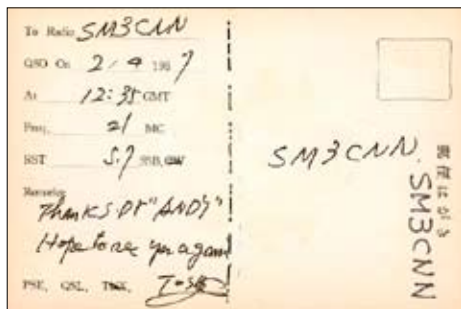 To Radio SM3CNN
QSO On 2/4 1967
At 12:35 GMT
Freq. 21 MC
RST 5.7 SSB, CW
Remarks
Thanks Dr "ANDY"
Hope to see you again
PSE, QSL, TNX,
SM3CNN
郵便はがき
SM3CNN